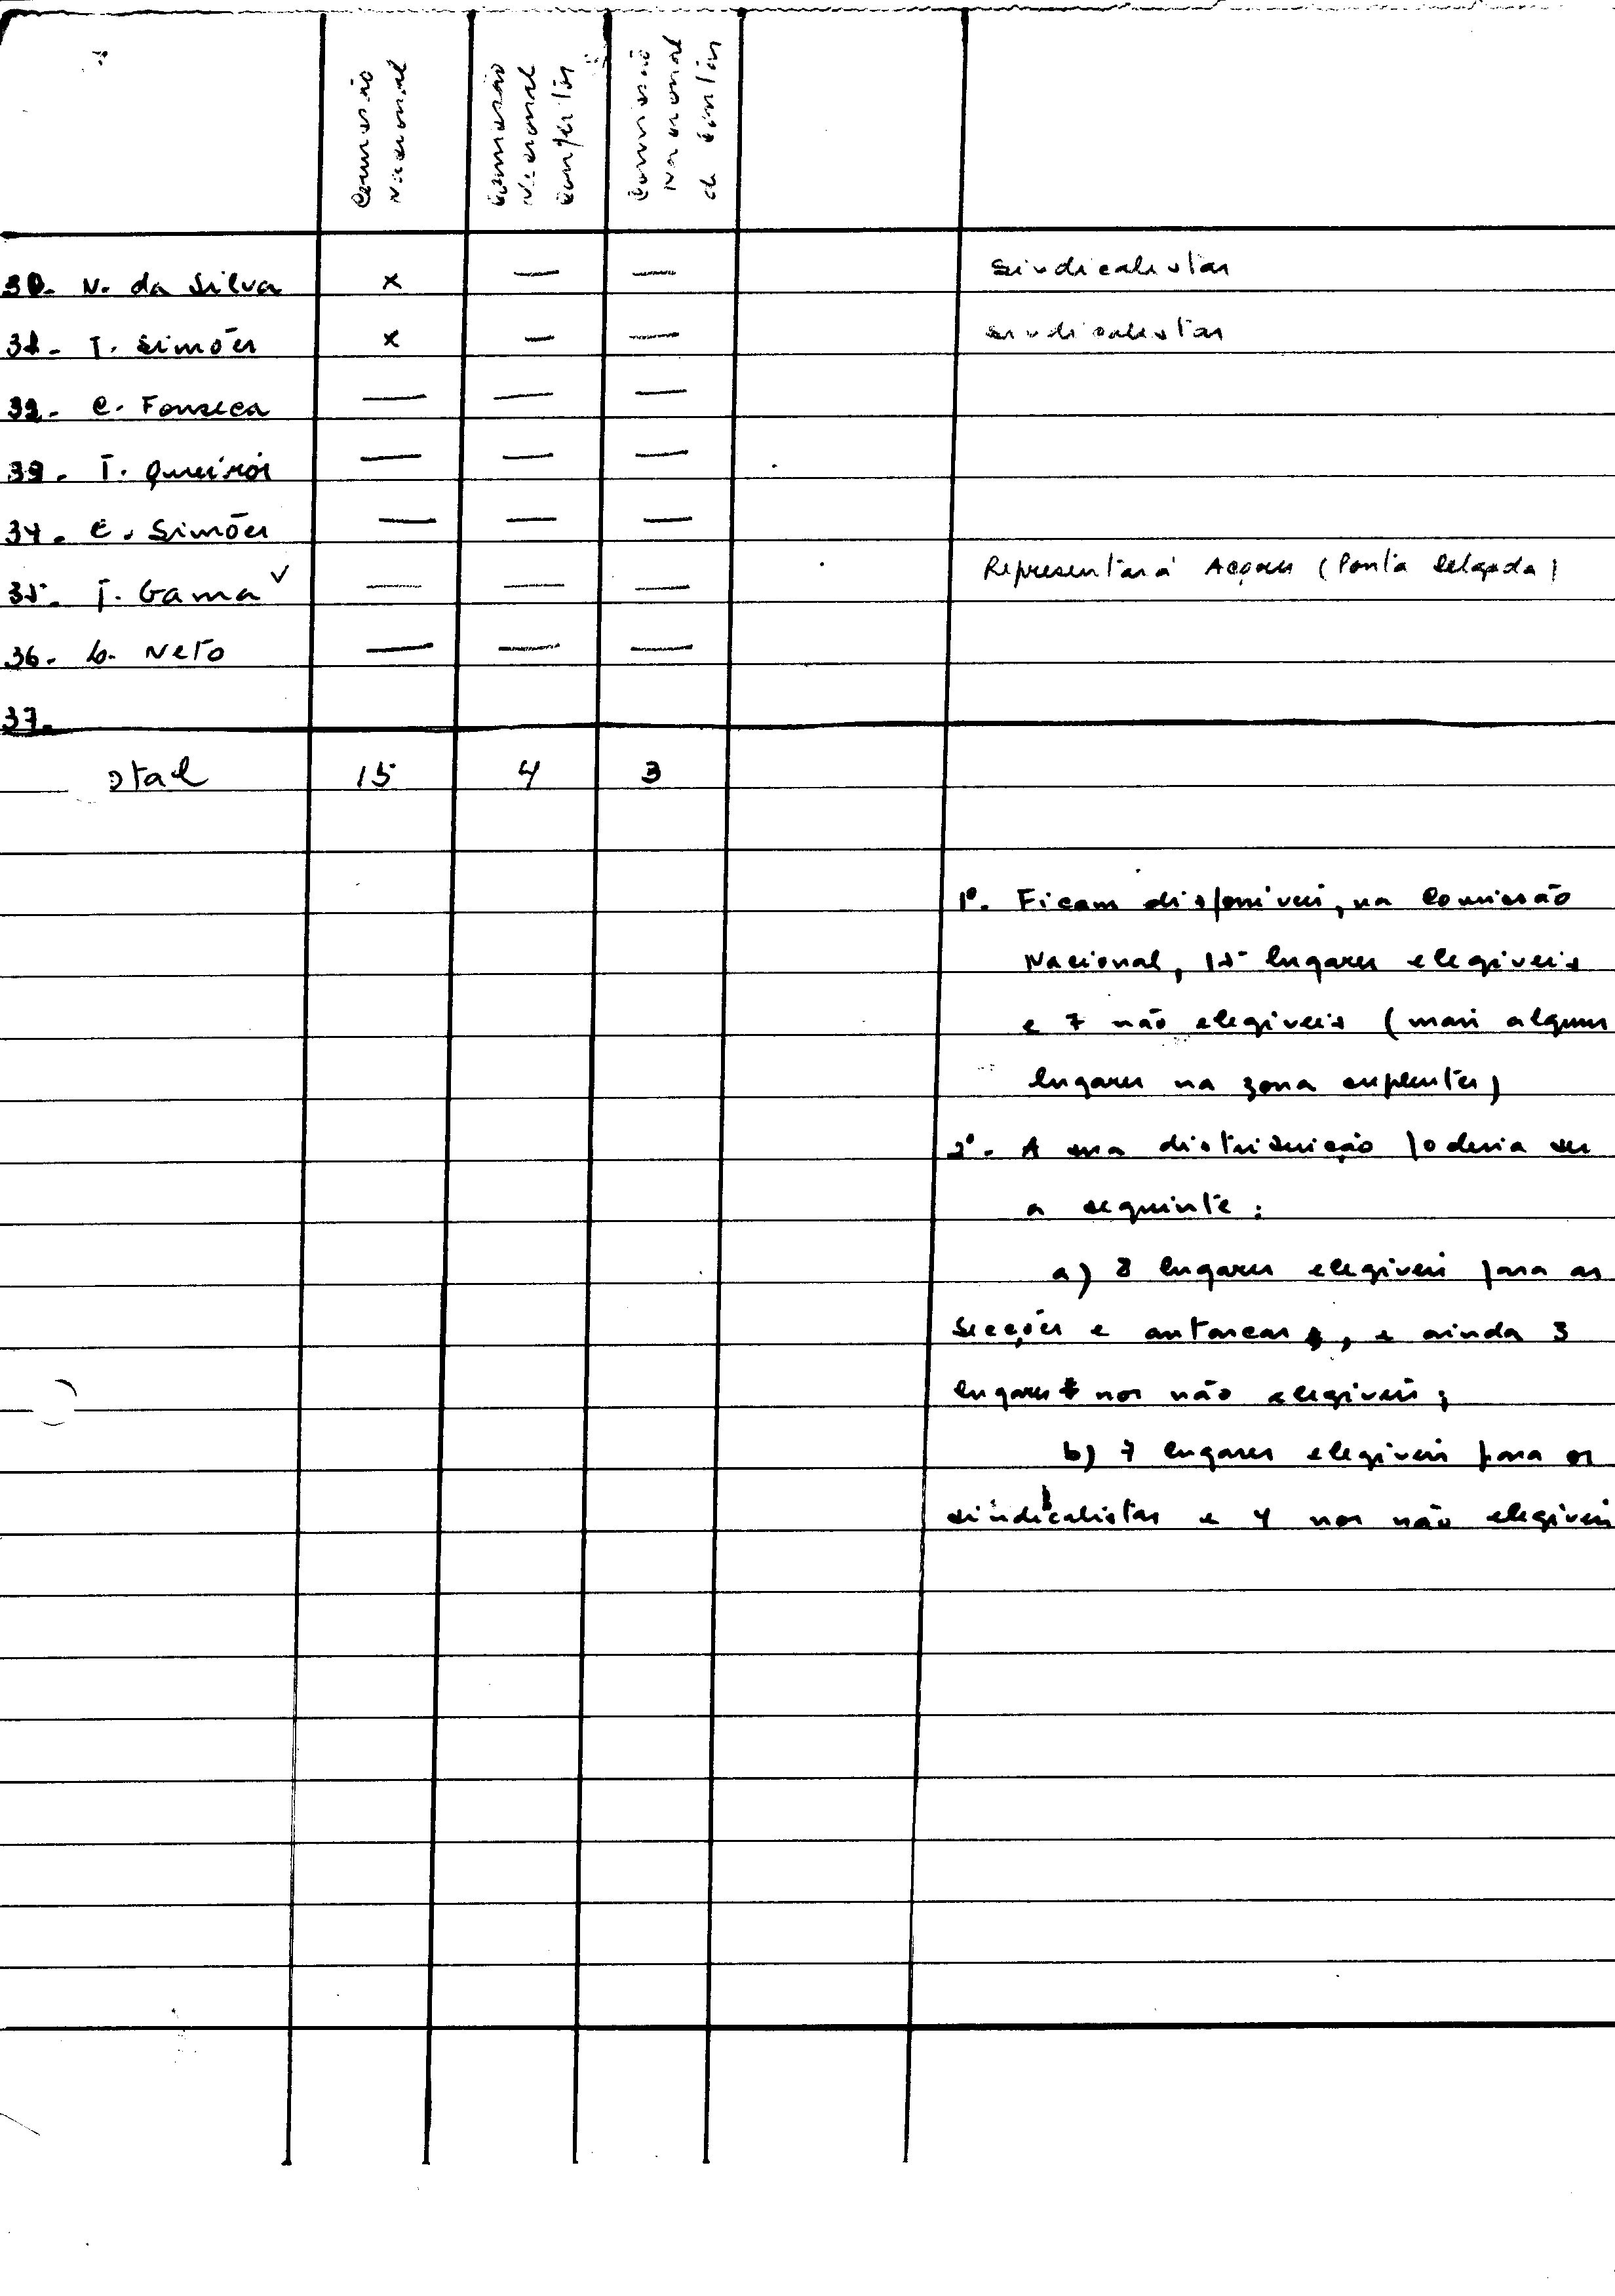 Comissão Nacional
Comissão Nacional
Comissão Nacional de
30. N. da Silva × — — Sindicalistas
31. T. Simões × — — Sindicalistas
32. C. Fonseca — — —
33. T. Queirós — — —
34. E. Simões — — —
35. J. Gama ✓ — — — Representará Açores (Ponta Delgada)
36. L. Neto — — —
37.
otal 15 4 3
1º. Ficam disponíveis, na Comissão
Nacional, 15 lugares elegíveis
e 7 não elegíveis (mais alguns
lugares na zona suplentes)
2º. A sua distribuição poderia ser
a seguinte:
a) 8 lugares elegíveis para as
Secções e autarcas, e ainda 3
lugares nos não elegíveis;
b) 7 lugares elegíveis para os
sindicalistas e 4 nos não elegíveis